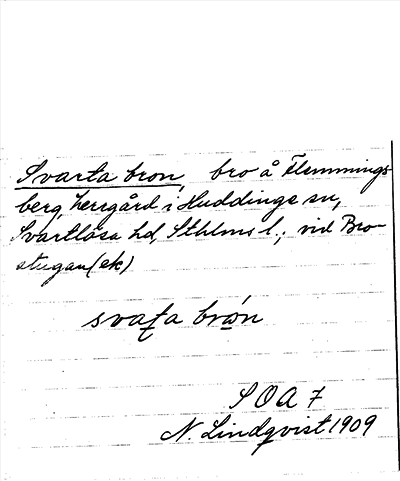 Svarta bron, bro å Flemmings-
berg, herrgård i Huddinge sn,
Svartlösa hd, Sthlms l.; vid Bro-
stugan (ek)
svaṭa brón
SOA 7
N. Lindqvist 1909